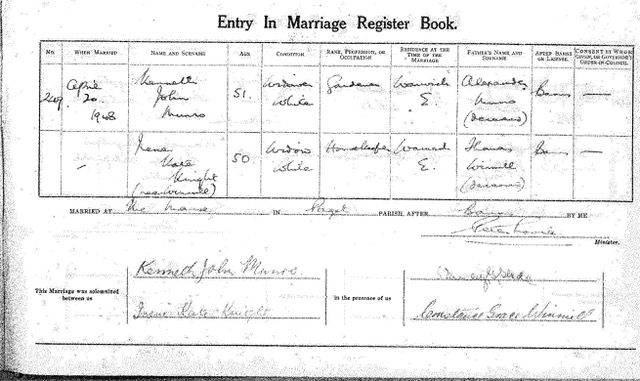 Entry In Marriage Register Book.
No. WHEN MARRIED NAME AND SURNAME AGE CONDITION RANK, PROFESSION, OR OCCUPATION RESIDENCE AT THE TIME OF THE MARRIAGE FATHER'S NAME AND SURNAME AFTER BANNS OR LICENSE. CONSENT BY WHOM GIVEN, OR GOVERNOR'S ORDER IN COUNCIL
April 20 1948 Kenneth John Munro 51. Widower White Gardener Warwick E. Alexander Munro (deceased) Banns —
Irene Kate Knight (nee Winmill) 50 Widow White Housekeeper Warwick E. Thomas Winmill (deceased) Banns —
MARRIED AT The Manse IN Paget PARISH, AFTER Banns BY ME
Minister.
This Marriage was solemnized between us
Kenneth John Munro
Irene Kate Knight
in the presence of us
Constance Grace Winmill